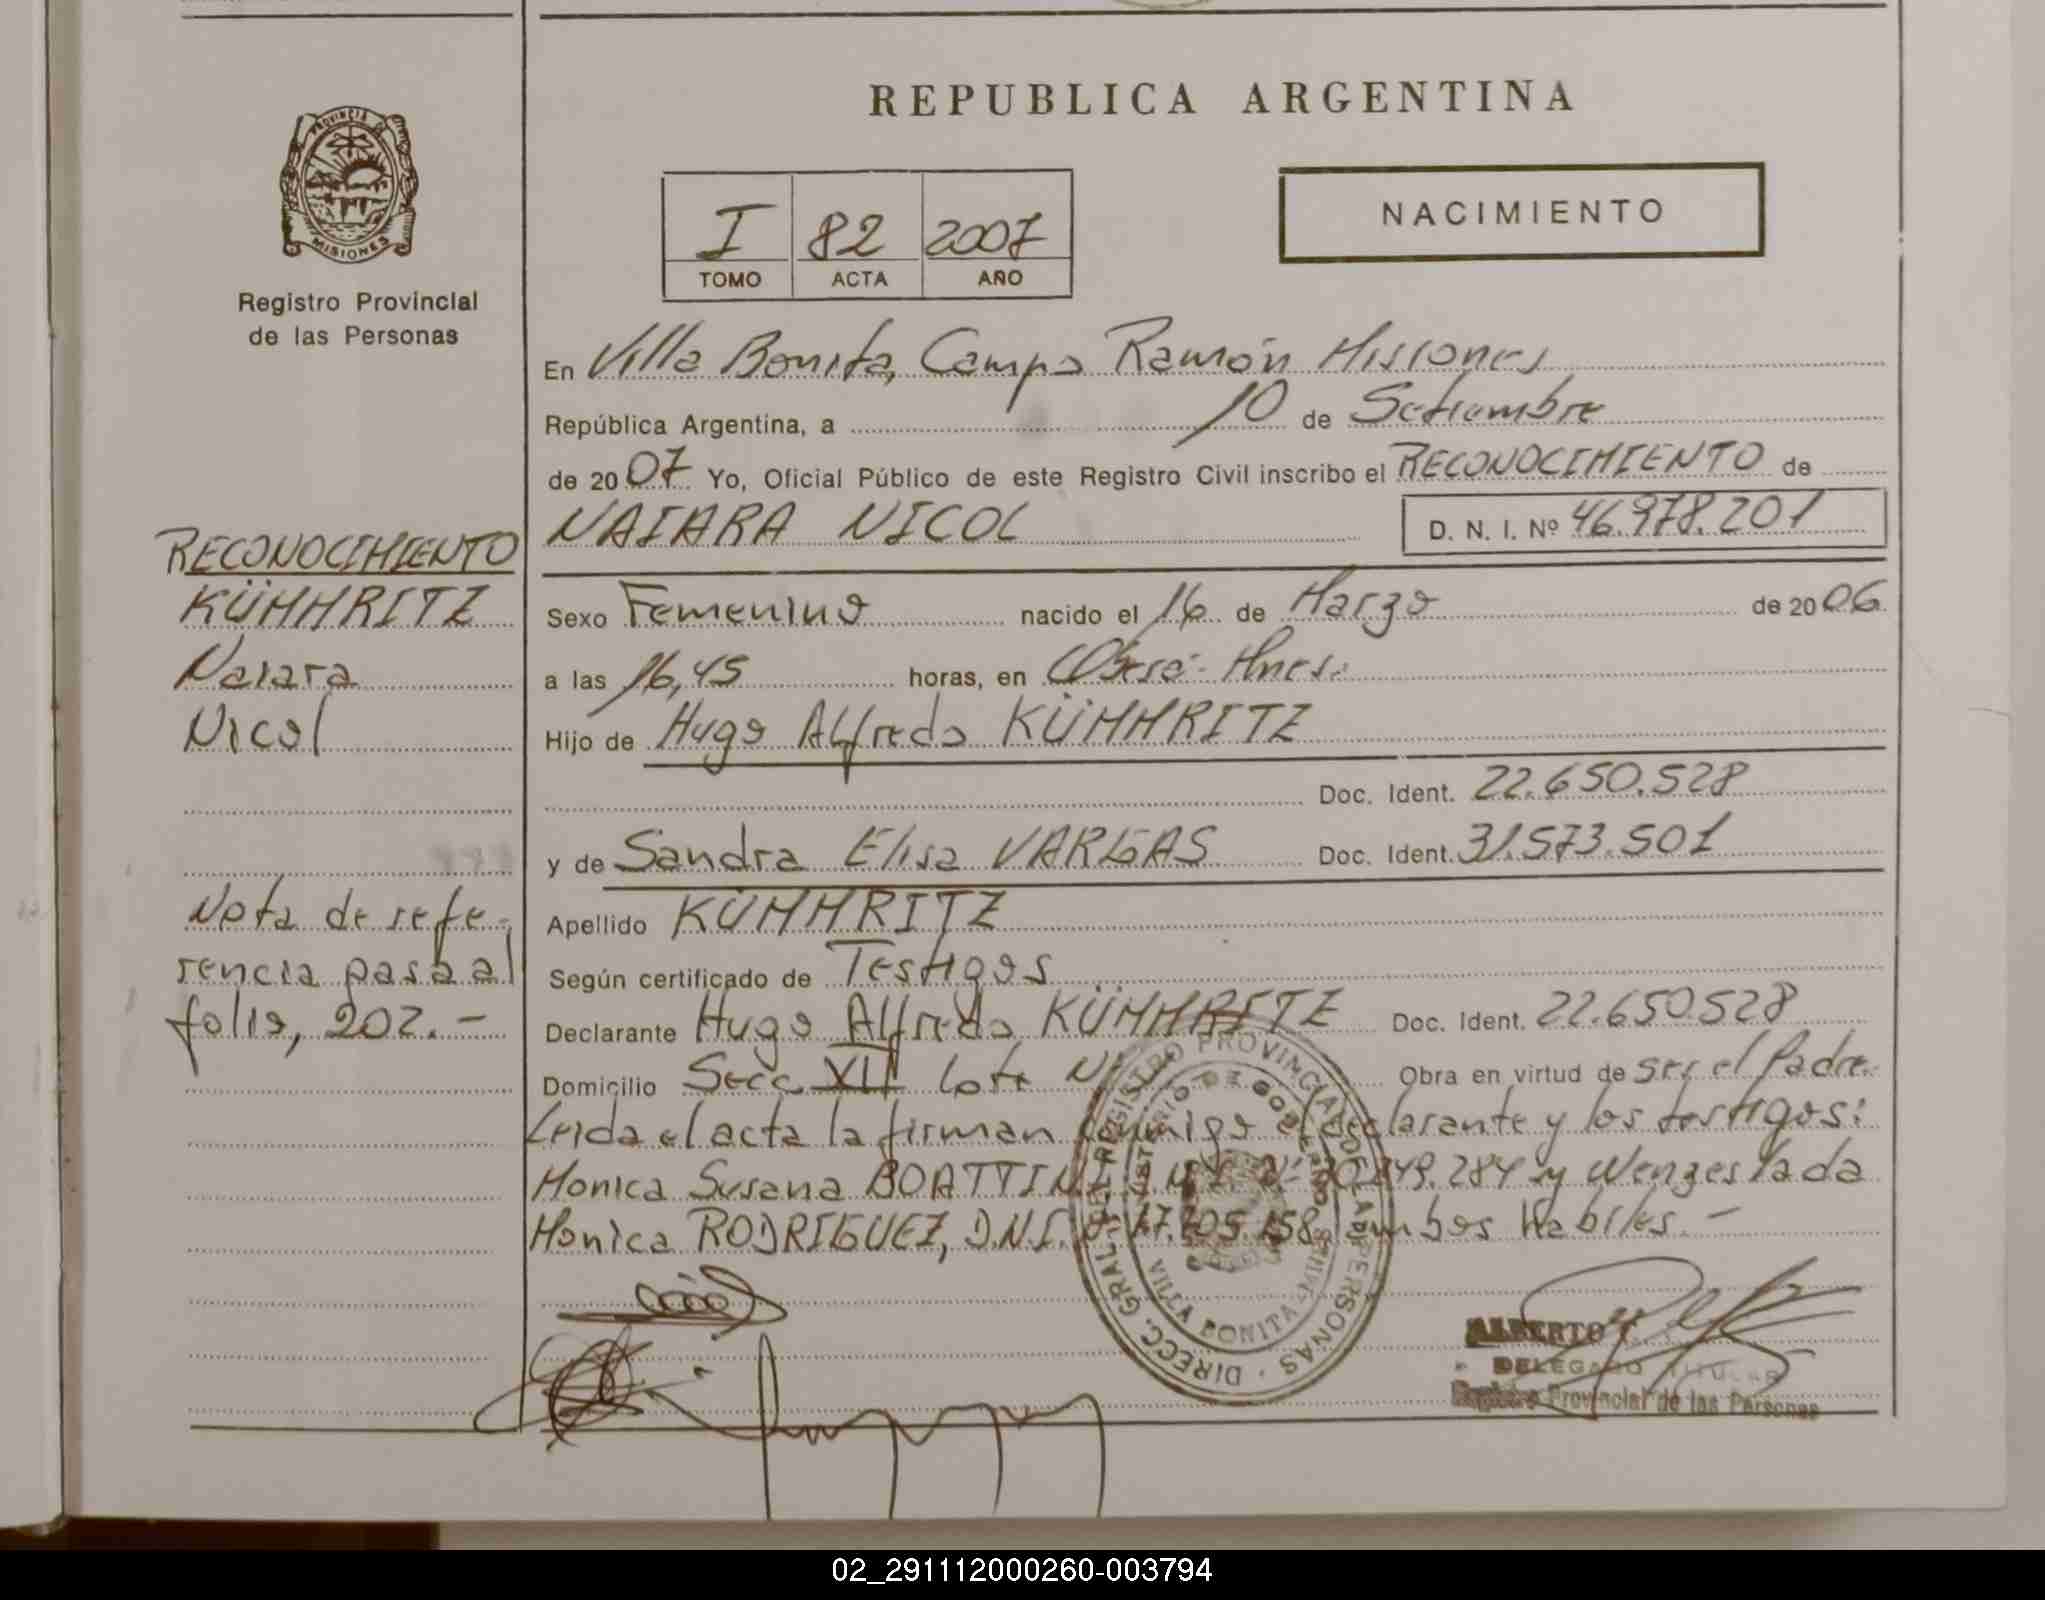 REPUBLICA ARGENTINA
PROVINCIA DE MISIONES
Registro Provincial
de las Personas
I 82 2007
TOMO ACTA AÑO
NACIMIENTO
En Villa Bonita, Campo Ramón Misiones
República Argentina, a 10 de Setiembre
de 2007 Yo, Oficial Público de este Registro Civil inscribo el RECONOCIMIENTO de
NAIARA NICOL D. N. I. Nº 46.978.201
RECONOCIMIENTO
KÜMMRITZ
Naiara
Nicol
Nota de refe-
rencia pasa al
folio, 202.-
Sexo Femenino nacido el 16 de Marzo de 2006
a las 16,45 horas, en Mnes.
Hijo de Hugo Alfredo KÜMMRITZ
Doc. Ident. 22.650.528
y de Sandra Elisa VARGAS Doc. Ident. 31.573.501
Apellido KÜMMRITZ
Según certificado de Testigos
Declarante Hugo Alfredo KÜMMRITZ Doc. Ident. 22.650528
Domicilio Secc. XII Lote Obra en virtud de ser el Padre.
Leida el acta la firman conmigo el declarante y los testigos:
Monica Susana BOATTINI 249.284 y Wenzeslada
Monica RODRIGUEZ, D.N.I. 158, ambos Habiles.-
DIRECC. GRAL. DEL REGISTRO PROVINCIAL DE LAS PERSONAS
MINISTERIO DE GOBIERNO
VILLA BONITA - MNES
ALBERTO
DELEGADO TITULAR
Registro Provincial de las Personas
02_291112000260-003794